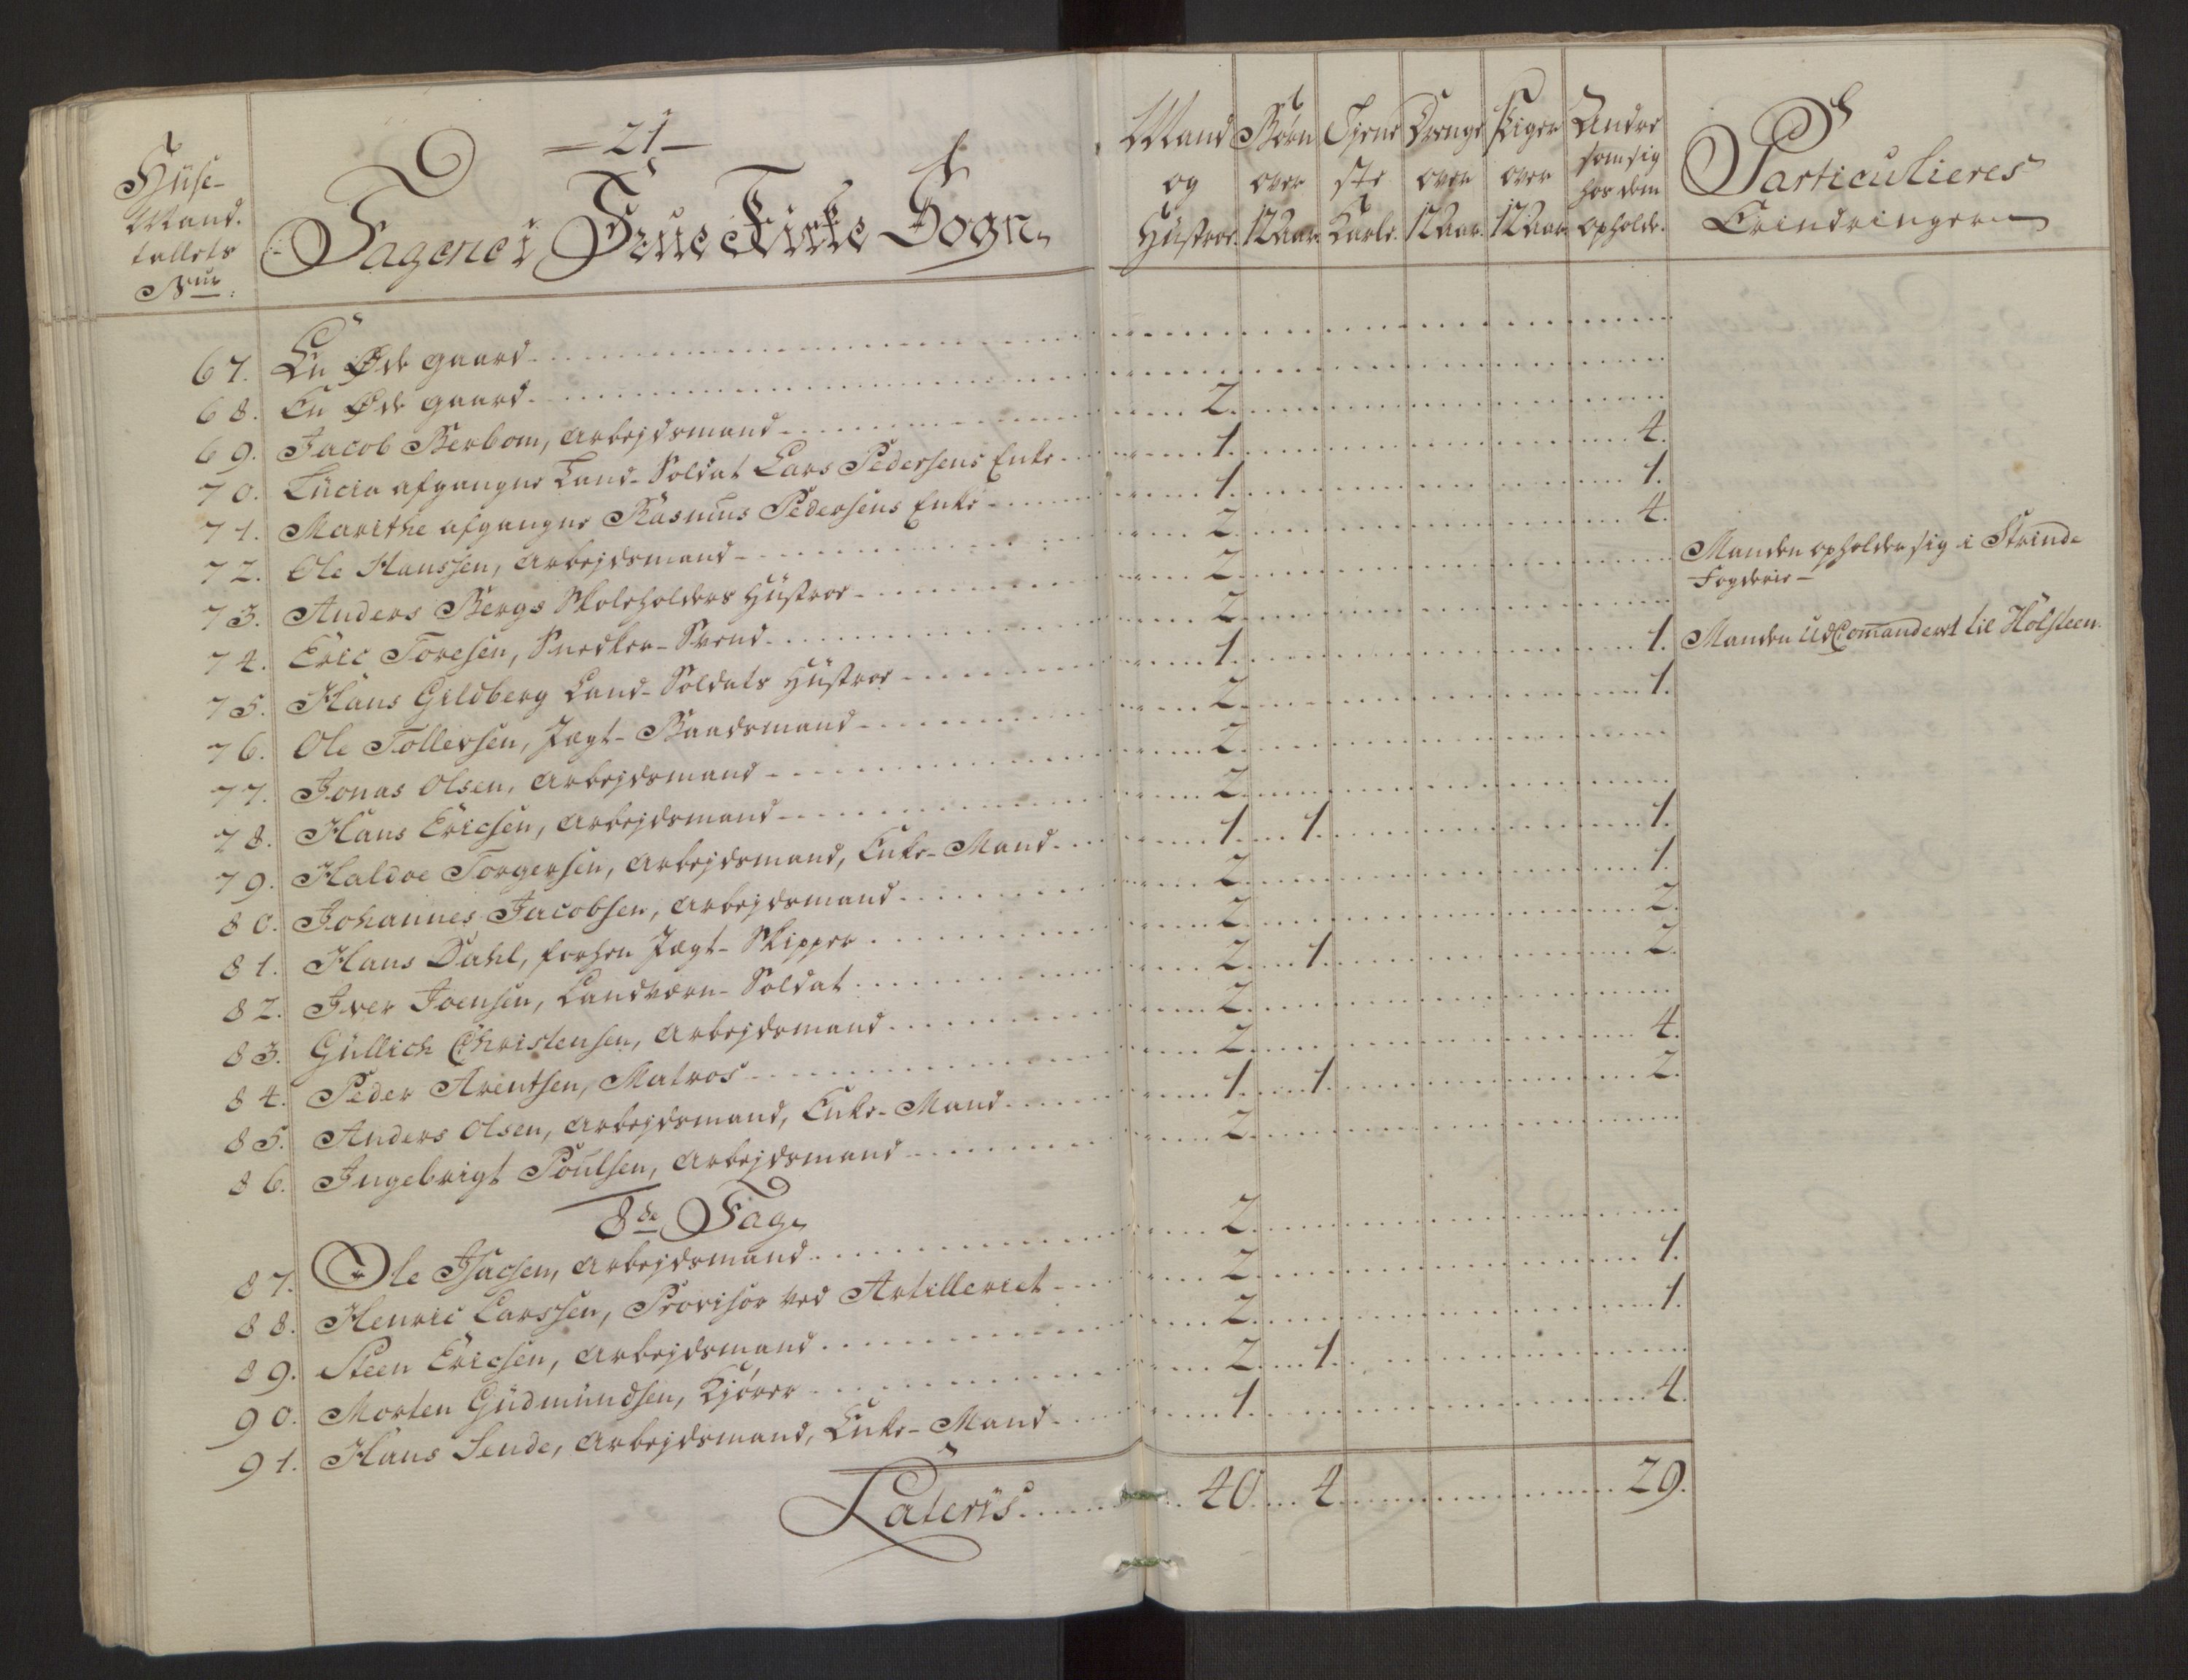 Hüse-
Mand.
tallets
Nur:
-21-
Tagene i Frue Kirke Sogn
Mand og Hüstroe. Børn over 12 Aar. Tjene ste Karle. Drenge over 12 Aar. Piger over 12 Aar. Andre som sig hos dem opholde. Particulieres Erindringer
67. En Øde gaard
68. En Øde gaard
69. Jacob Berbom, Arbejdsmand 2.
70. Lücia afgangne Land-Soldat Lars Pedersens Enke 1. 4.
71. Marithe afgangne Rasmus Pedersens Enke 1. 1.
72. Ole Hanssen, Arbejdsmand 2. 4.
73. Anders Bergs Skoleholders Hüstroe 2. Manden opholder sig i Strinde
Fogderie
74. Eric Toresen, Snedker-Svend 2.
75. Hans Gildberg Land-Soldats Hüstroe 1. 1. Manden UdComanderet til Holsteen.
76. Ole Tollersen, Jægt-Baadsmand 2. 1.
77. Jonas Olsen, Arbejdsmand 2.
78. Hans Ericsen, Arbejdsmand 2.
79. Haldoe Torgersen, Arbejdsmand, Enke-Mand 1. 1. 1.
80. Johannes Jacobsen, Arbejdsmand 2. 1.
81. Hans Dahl, forhen Jægt-Skipper 2. 2.
82. Iver Joensen, Landværn-Soldat 2. 1. 2.
83. Güllich Christensen, Arbejdsmand 2.
84. Peder Arentsen, Matros 2. 4.
85. Anders Olsen, Arbejdsmand, Enke-Mand 1. 1. 2.
86. Ingebrigt Poulsen, Arbejdsmand 2.
8de Tag
87. Ole Isacsen, Arbejdsmand 2.
88. Henric Larssen, Provisor ved Artilleriet 2. 1.
89. Steen Ericsen, Arbejdsmand 2. 1.
90. Morten Güdmündsen, Kjører 2. 1.
91. Hans Sende, Arbejdsmand, Enke-Mand 1. 4.
Lateris 40. 4. 29.